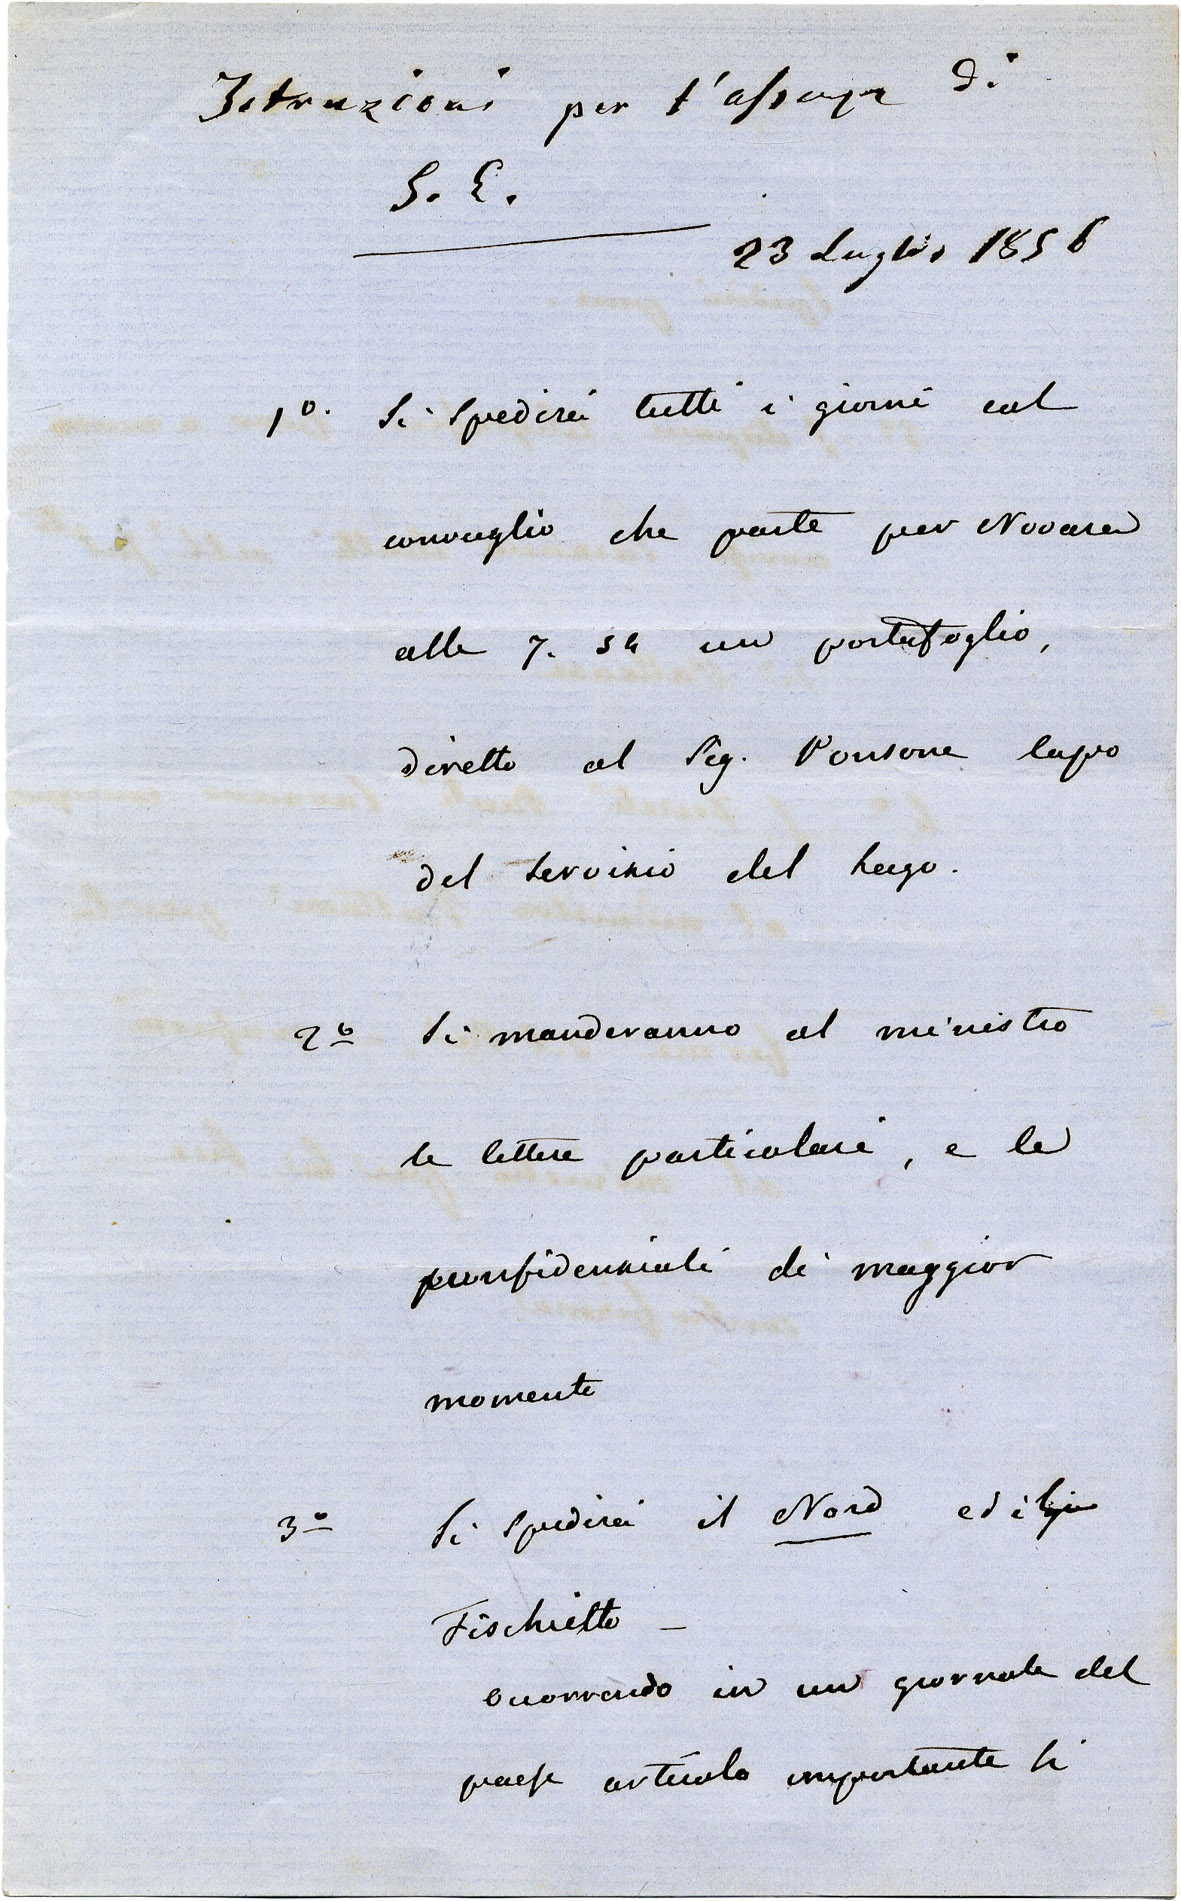 Istruzioni per l'assenza di
S. E.
23 Luglio 1856
1º. Si spedirà tutti i giorni col
convoglio che parte per Novara
alle 7. 50 un portafoglio,
diretto al Sig. Ponsone capo
del servizio del Lago.
2º Si manderanno al ministro
le lettere particolari, e le
confidenziali di maggior
momento
3º Si spedirà il Nord ed il
Fischietto —
occorrendo in un giornale del
paese articolo importante si